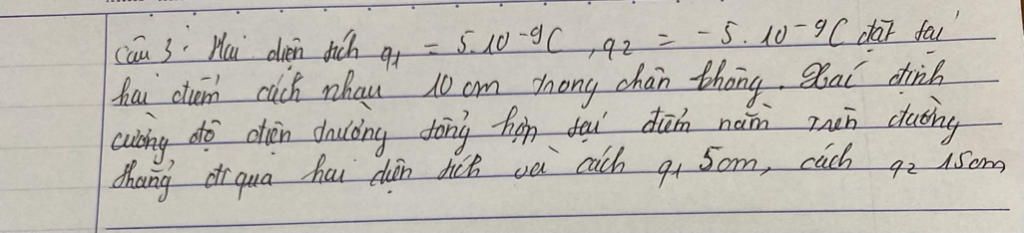 Câu 3: Hai điện tích q1 = 5.10-9C, q2 = -5.10-9C đặt tại
hai điểm cách nhau 10 cm trong chân không. Xác định
cường độ điện trường tổng hợp tại điểm nằm trên đường
thẳng đi qua hai điện tích và cách q1 5cm, cách q2 15cm